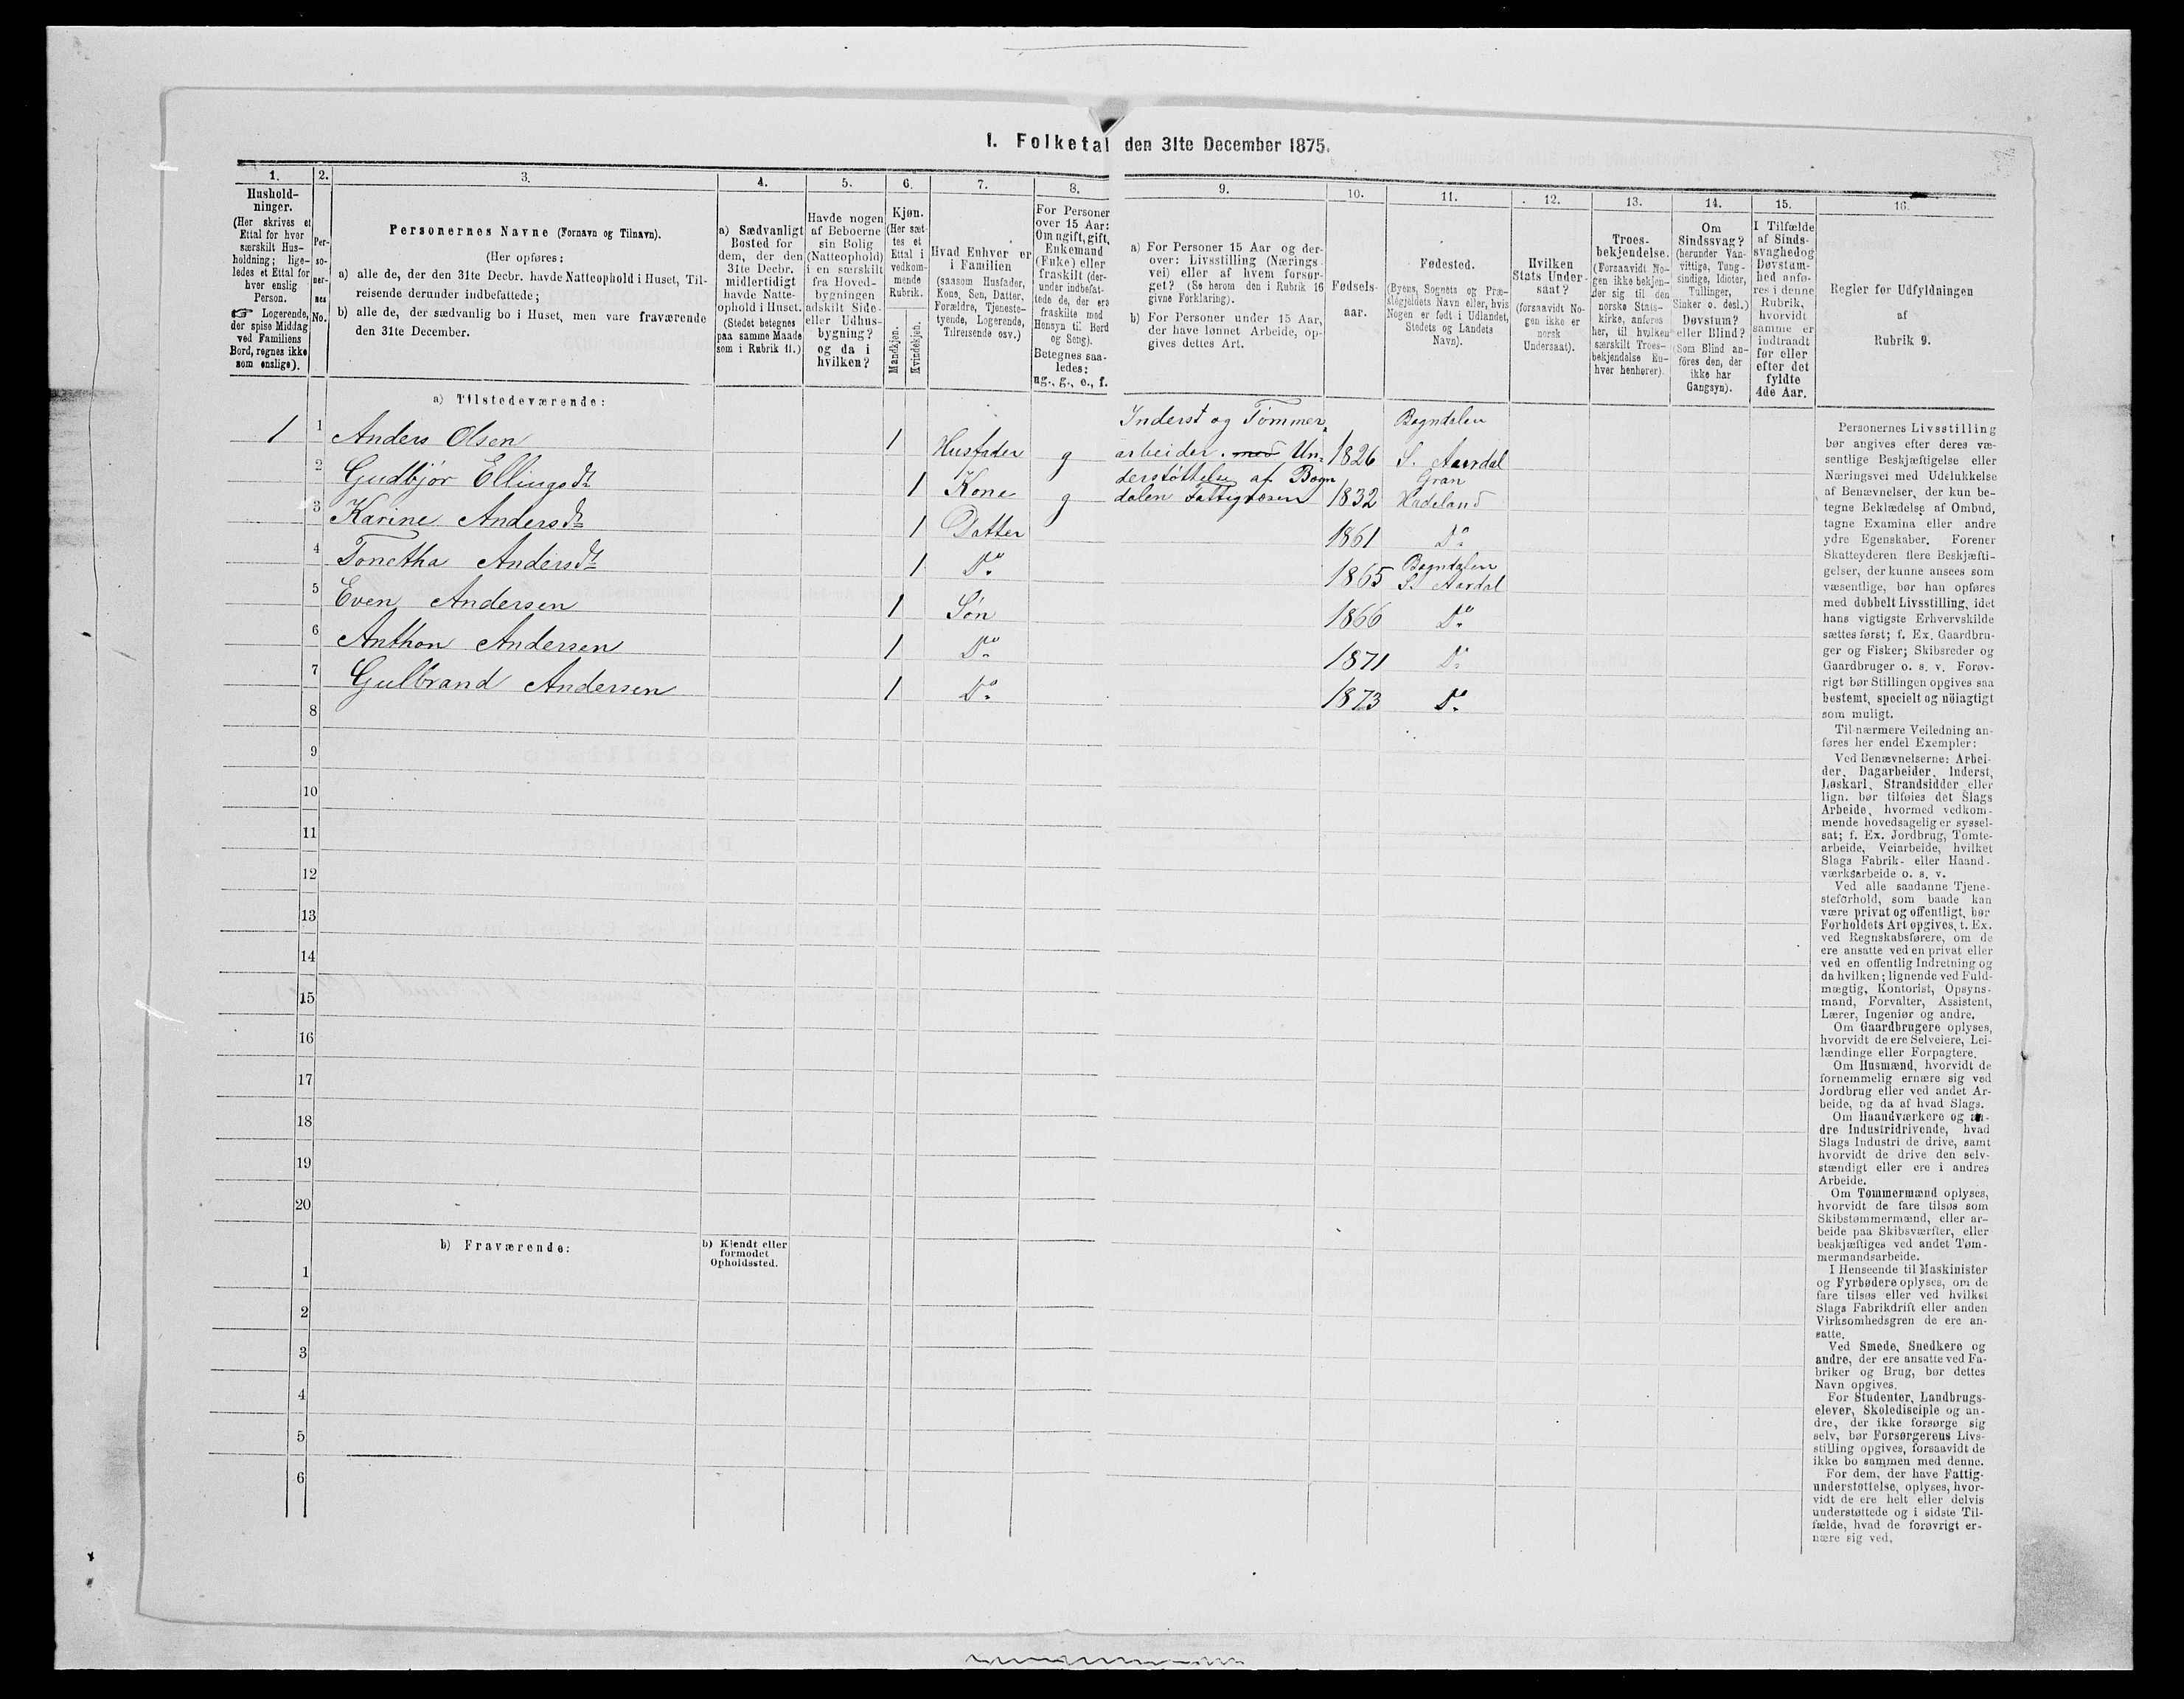 I. Folketal den 31te December 1875.
1.
Hushold-
ninger.
(Her skrives et
Ettal for hver
særskilt Hus-
holdning; lige-
ledes et Ettal for
hver enslig
Person.
☞ Logerende,
der spise Middag
ved Familiens
Bord, regnes ikke
som enslige).
2.
Per-
so-
ner-
nes
No.
3.
Personernes Navne (Fornavn og Tilnavn).
(Her opføres:
a) alle de, der den 31te Decbr. havde Natteophold i Huset, Til-
reisende derunder indbefattede;
b) alle de, der sædvanlig bo i Huset, men vare fraværende
den 31te December.
4.
a) Sædvanligt
Bosted for
dem, der den
31te Decbr.
midlertidigt
havde Natte-
ophold i Huset.
(Stedet betegnes
paa samme Maade
som i Rubrik 11.)
5.
Havde nogen
af Beboerne
sin Bolig
(Natteophold)
i en særskilt
fra Hoved-
bygningen
adskilt Side-
eller Udhus-
bygning?
og da i
hvilken?
6.
Kjøn.
(Her sæt-
tes et
Ettal i
vedkom-
mende
Rubrik.
Mandkjøn.
Kvindekjøn.
7.
Hvad Enhver er
i Familien
(saasom Husfader,
Kone, Søn, Datter,
Forældre, Tjeneste-
tyende, Logerende,
Tilreisende osv.)
8.
For Personer
over 15 Aar:
Om ugift, gift,
Enkemand
(Enke) eller
fraskilt (der-
under indbefat-
tede de, der ere
fraskilte med
Hensyn til Bord
og Seng).
Betegnes saa-
ledes:
ug., g., e., f.
9.
a) For Personer 15 Aar og der-
over: Livsstilling (Nærings-
vei) eller af hvem forsør-
get? (Se herom den i Rubrik 16
givne Forklaring).
b) For Personer under 15 Aar,
der have lønnet Arbeide, op-
gives dettes Art.
10.
Fødsels-
aar.
11.
Fødested.
(Byens, Sognets og Præ-
stegjeldets Navn eller, hvis
Nogen er født i Udlandet,
Stedets og Landets
Navn).
12.
Hvilken
Stats Under-
saat?
(forsaavidt No-
gen ikke er
norsk
Undersaat).
13.
Troes-
bekjendelse.
(Forsaavidt No-
gen ikke bekjen-
der sig til den
norske Stats-
kirke, anføres
her, til hvilken
særskilt Troes-
bekjendelse En-
hver henhører).
14.
Om
Sindssvag?
(herunder Van-
vittige, Tung-
sindige, Idioter,
Tullinger,
Sinker o. desl.)
Døvstum?
eller Blind?
(Som Blind an-
føres den, der
ikke har
Gangsyn).
15.
I Tilfælde
af Sinds-
svaghed og
Døvstum-
hed anfø-
res i denne
Rubrik,
hvorvidt
samme er
indtraadt
før eller
efter det
fyldte
4de Aar.
16.
Regler for Udfyldningen
af
Rubrik 9.
a) Tilstedeværende:
Inderst og Tømmer Bagndalen
1 1 Anders Olsen 1 Husfader g arbeider. med Un- 1826 S. Aurdal
derstøttelse af Bagn Gran
2 Gudbjør Ellingsdt 1 Kone g dalen Fattigvæsen 1832 Hadeland
3 Karine Andersdt 1 Datter 1861 Do
Bagndalen
4 Tonetha Andersdt 1 Do 1865 S. Aurdal
5 Even Andersen 1 Søn 1866 Do
6 Anthon Andersen 1 Do 1871 Do
7 Gulbrand Andersen 1 Do 1873 Do
8
9
10
11
12
13
14
15
16
17
18
19
20
b) Fraværende:
b) Kjendt eller
formodet
Opholdssted.
1
2
3
4
5
6
Personernes Livsstilling
bør angives efter deres væ-
sentlige Beskjæftigelse eller
Næringsvei med Udelukkelse
af Benævnelser, der kun be-
tegne Beklædelse af Ombud,
tagne Examina eller andre
ydre Egenskaber. Forener
Skatteyderen flere Beskjæfti-
gelser, der kunne ansees som
væsentlige, bør han opføres
med dobbelt Livsstilling, idet
hans vigtigste Erhvervskilde
sættes først; f. Ex. Gaardbru-
ger og Fisker; Skibsreder og
Gaardbruger o. s. v. Forøv-
rigt bør Stillingen opgives saa
bestemt, specielt og nöiagtigt
som muligt.
Til nærmere Veiledning an-
føres her endel Exempler:
Ved Benævnelserne: Arbei-
der, Dagarbeider, Inderst,
Løskarl, Strandsidder eller
lign. bør tilføies det Slags
Arbeide, hvormed vedkom-
mende hovedsagelig er syssel-
sat; f. Ex. Jordbrug, Tomte-
arbeide, Veiarbeide, hvilket
Slags Fabrik- eller Haand-
værksarbeide o. s. v.
Ved alle saadanne Tjene-
steforhold, som baade kan
være privat og offentligt, bør
Forholdets Art opgives, t. Ex.
ved Regnskabsførere, om de
ere ansatte ved en privat eller
ved en offentlig Indretning og
da hvilken; lignende ved Fuld-
mægtig, Kontorist, Opsyns-
mand, Forvalter, Assistent,
Lærer, Ingeniør og andre.
Om Gaardbrugere oplyses,
hvorvidt de ere Selveiere, Lei-
lændinge eller Forpagtere.
Om Husmænd, hvorvidt de
fornemmelig ernære sig ved
Jordbrug eller ved andet Ar-
beide, og da af hvad Slags.
Om Haandværkere og an-
dre Industridrivende, hvad
Slags Industri de drive, samt
hvorvidt de drive den selv-
stændigt eller ere i andres
Arbeide.
Om Tømmermænd oplyses,
hvorvidt de fare tilsøs som
Skibstømmermænd, eller ar-
beide paa Skibsværfter, eller
beskjæftiges ved andet Tøm-
mermandsarbeide.
I Henseende til Maskinister
og Fyrbødere oplyses, om de
fare tilsøs eller ved hvilket
Slags Fabrikdrift eller anden
Virksomhedsgren de ere an-
satte.
Ved Smede, Snedkere og
andre, der ere ansatte ved Fa-
briker og Brug, bør dettes
Navn opgives.
For Studenter, Landbrugs-
elever, Skoledisciple og an-
dre, der ikke forsørge sig
selv, bør Forsørgerens Livs-
stilling opgives, forsaavidt de
ikke bo sammen med denne.
For dem, der have Fattig-
understøttelse, oplyses, hvor-
vidt de ere helt eller delvis
understøttede og i sidste Til-
fælde, hvad de forøvrigt er-
nære sig ved.